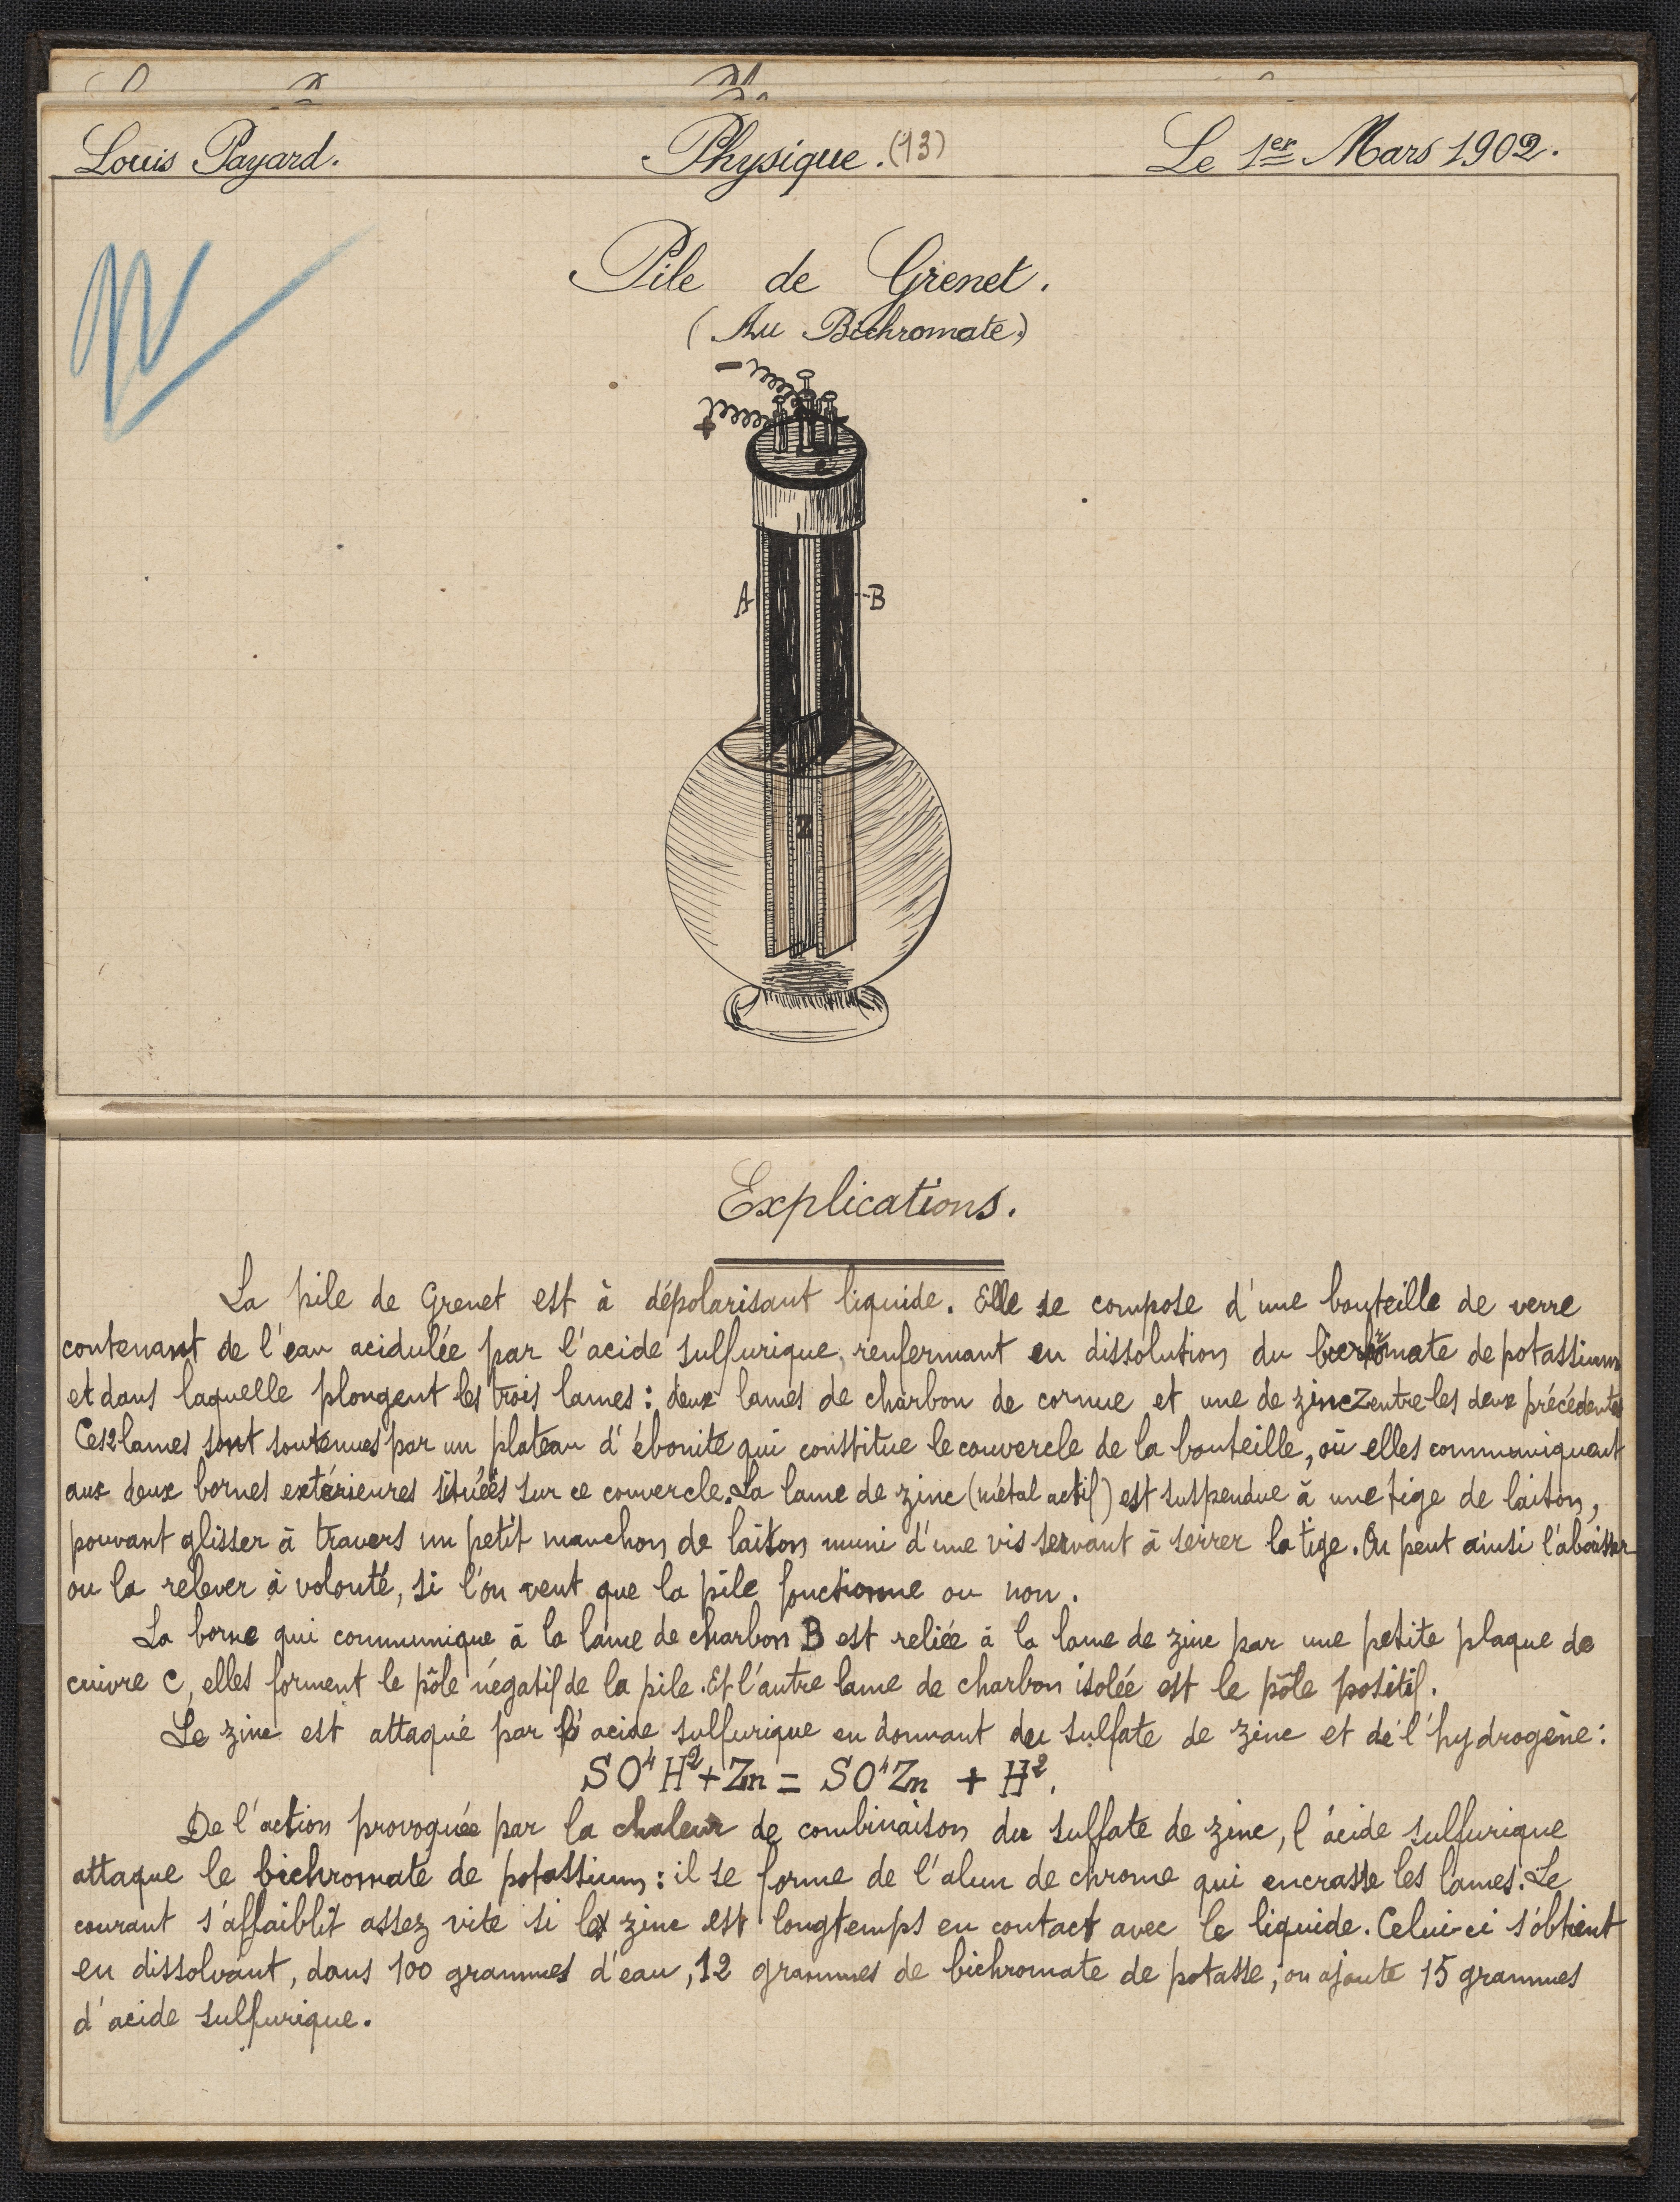 Louis Payard. Physique. (13) Le 1er Mars 1902.
Pile de Grenet.
(Au Bichromate)
-
+
A B
Z
Explications.
La pile de Grenet est à dépolarisant liquide. Elle se compose d'une bouteille de verre
contenant de l'eau acidulée par l'acide sulfurique, renfermant en dissolution du bichromate de potassium
et dans laquelle plongent les trois lames : deux lames de charbon de cornue et une de zinc Z entre les deux précédentes
Ces 2 lames sont soutenues par un plateau d'ébonite qui constitue le couvercle de la bouteille, où elles communiquent
aux deux bornes extérieures situées sur ce couvercle. La lame de zinc (métal actif) est suspendue à une tige de laiton,
pouvant glisser à travers un petit manchon de laiton muni d'une vis servant à serrer la tige. On peut ainsi l'abaisser
ou la relever à volonté, si l'on veut que la pile fonctionne ou non.
La borne qui communique à la lame de charbon B est reliée à la lame de zinc par une petite plaque de
cuivre C, elles forment le pôle négatif de la pile. Et l'autre lame de charbon isolée est le pôle positif.
Le zinc est attaqué par l'acide sulfurique en donnant du sulfate de zinc et de l'hydrogène :
SO⁴H² + Zn = SO⁴Zn + H².
De l'action provoquée par la chaleur de combinaison du sulfate de zinc, l'acide sulfurique
attaque le bichromate de potassium : il se forme de l'alun de chrome qui encrasse les lames. Le
courant s'affaiblit assez vite si le zinc est longtemps en contact avec le liquide. Celui-ci s'obtient
en dissolvant, dans 100 grammes d'eau, 12 grammes de bichromate de potasse, on ajoute 15 grammes
d'acide sulfurique.